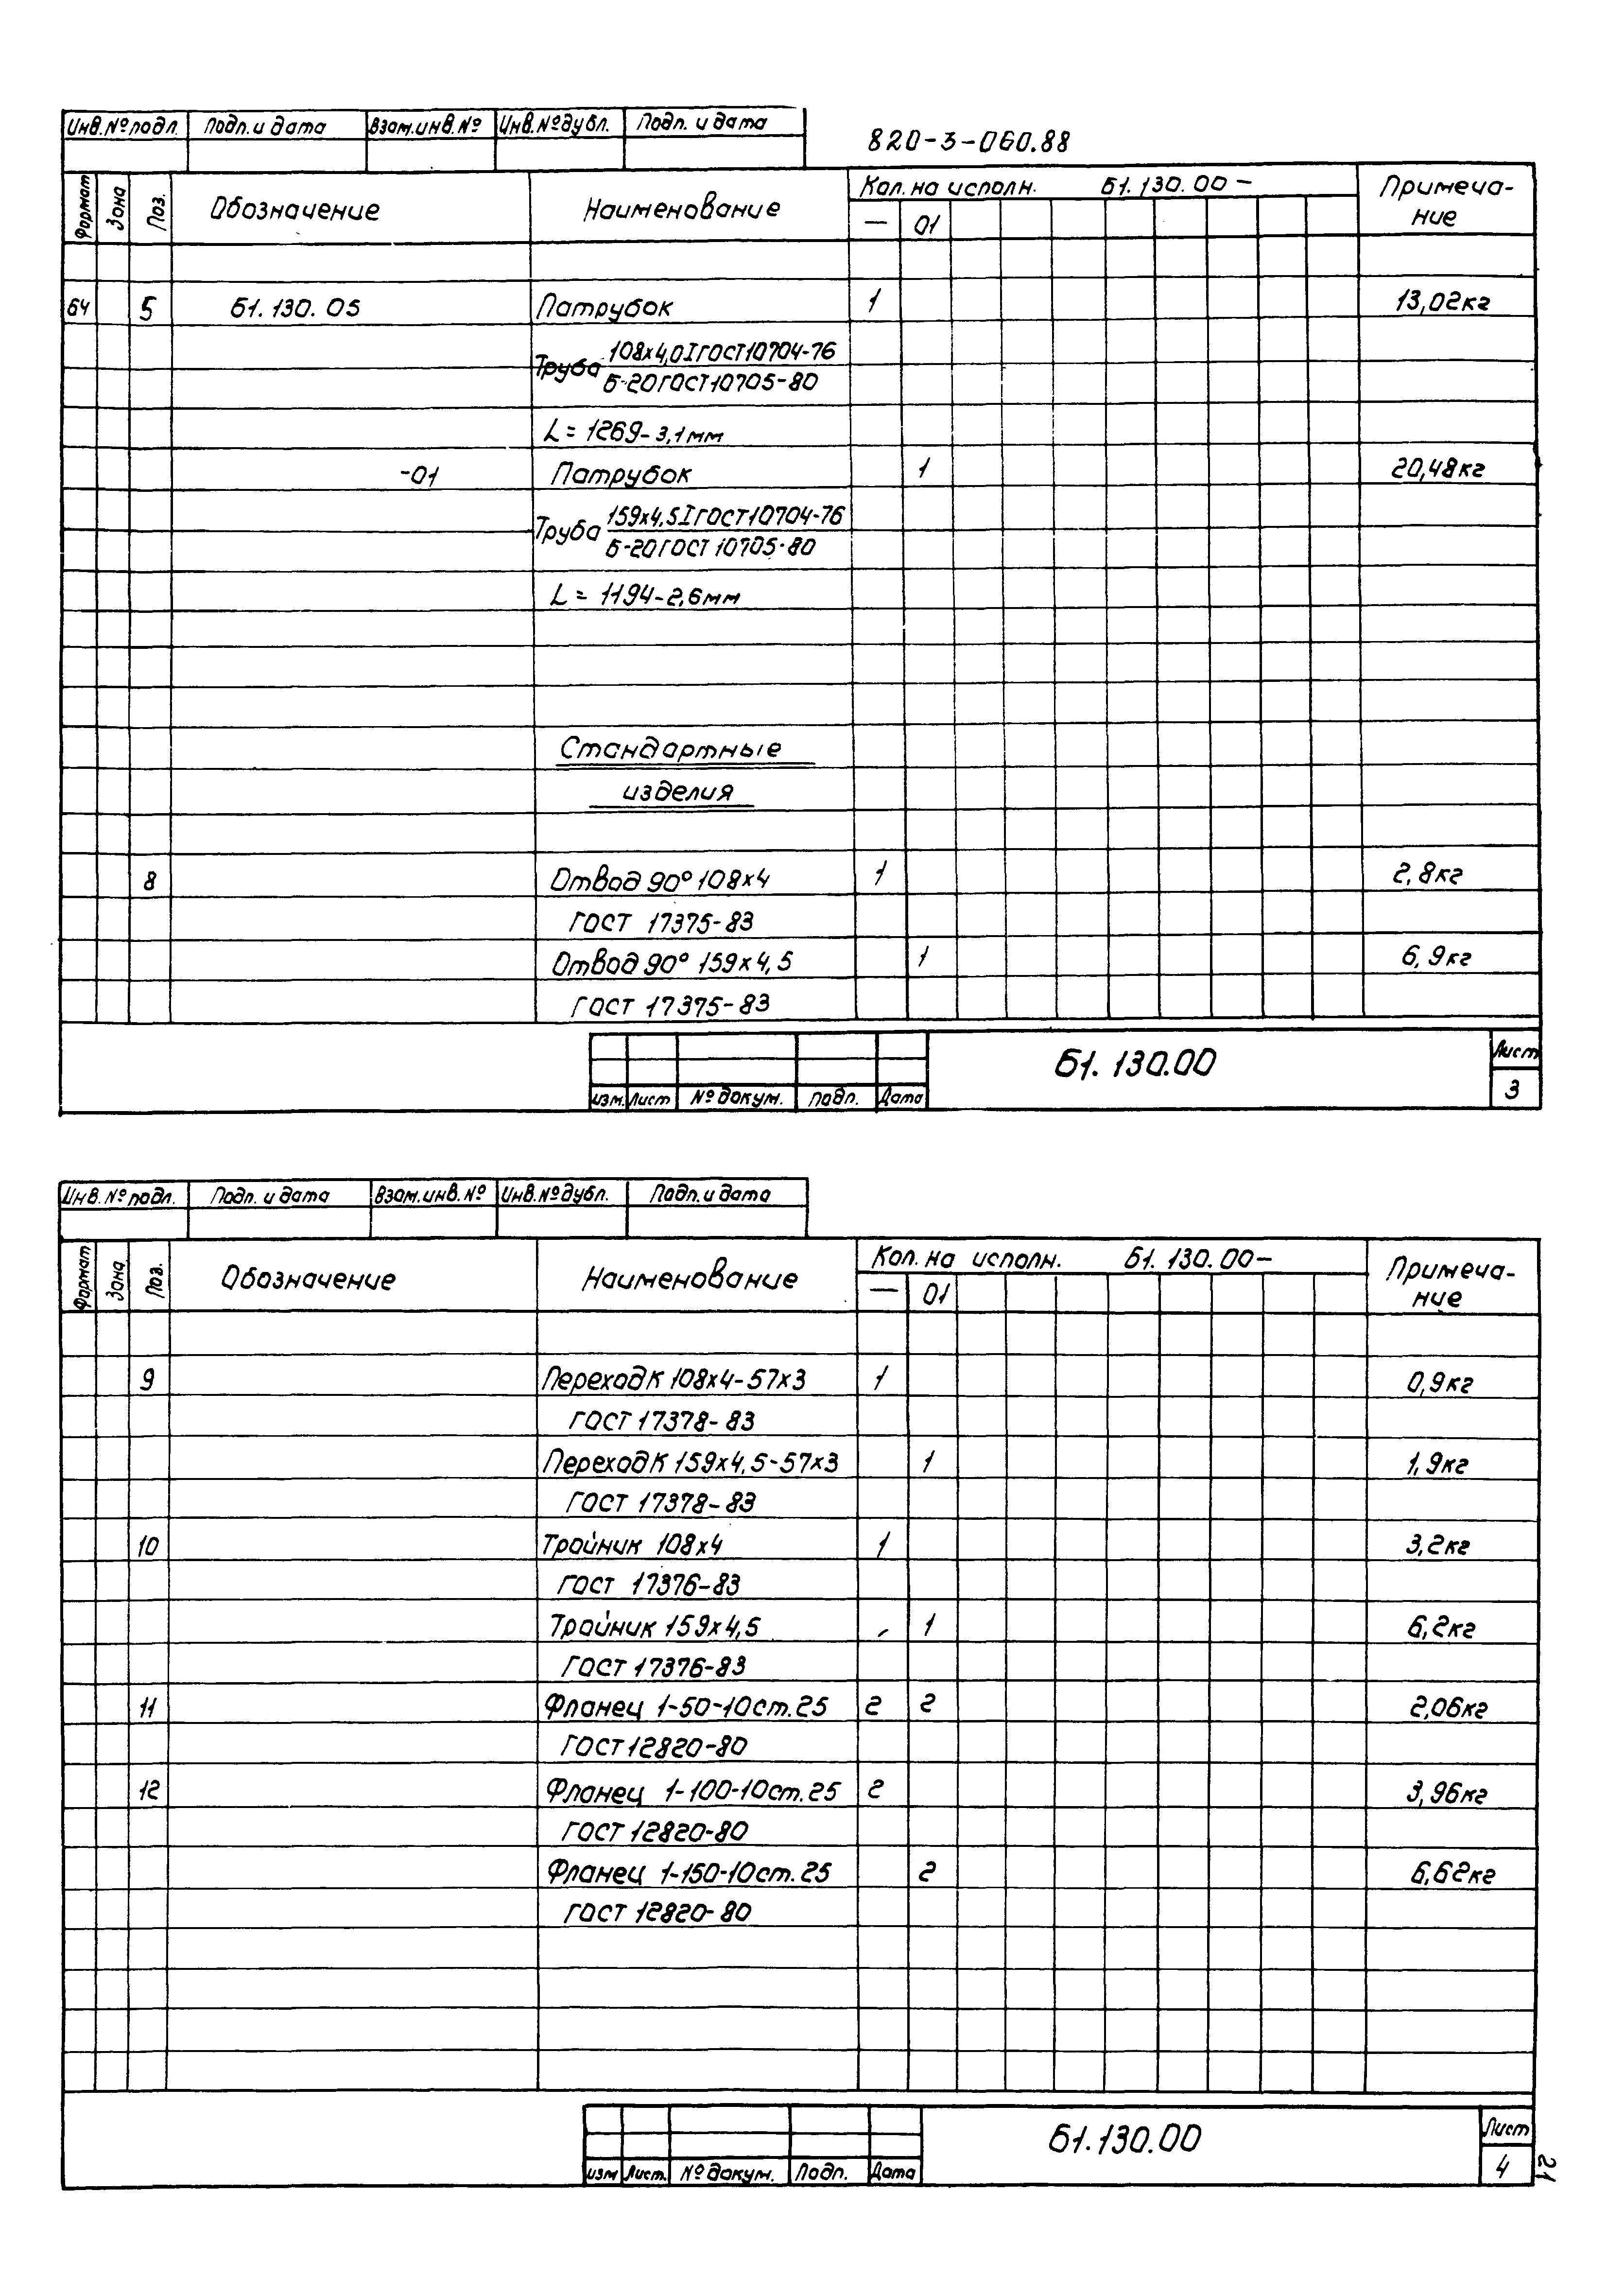 Инв. № подл. Подп. и дата Взам. инв. № Инв. № дубл. Подп. и дата
820-3-060.88
Формат Зона Поз. Обозначение Наименование Кол. на исполн. Б1.130.00 – Примеча-
– 01 ние
Б4 5 Б1.130.05 Патрубок 1 13,02кг
108х4,0 I ГОСТ 10704-76
Труба
Б-20 ГОСТ 10705-80
L = 1269-3,1мм
-01 Патрубок 1 20,48кг
159х4,5 I ГОСТ 10704-76
Труба
Б-20 ГОСТ 10705-80
L = 1194-2,6мм
Стандартные
изделия
8 Отвод 90° 108х4 1 2,8кг
ГОСТ 17375-83
Отвод 90° 159х4,5 1 6,9кг
ГОСТ 17375-83
Б1.130.00 Лист
изм. Лист № докум. подп. Дата 3
Инв. № подл. Подп. и дата Взам. инв. № Инв. № дубл. Подп. и дата
Формат Зона Поз. Обозначение Наименование Кол. на исполн. Б1.130.00– Примеча-
– 01 ние
9 Переход К 108х4-57х3 1 0,9кг
ГОСТ 17378-83
Переход К 159х4,5-57х3 1 1,9кг
ГОСТ 17378-83
10 Тройник 108х4 1 3,2кг
ГОСТ 17376-83
Тройник 159х4,5 1 6,2кг
ГОСТ 17376-83
11 Фланец 1-50-10 ст. 25 2 2 2,06кг
ГОСТ 12820-80
12 Фланец 1-100-10 ст. 25 2 3,96кг
ГОСТ 12820-80
Фланец 1-150-10 ст. 25 2 6,62кг
ГОСТ 12820-80
Б1.130.00 Лист
изм Лист. № докум. Подп. Дата 4
21